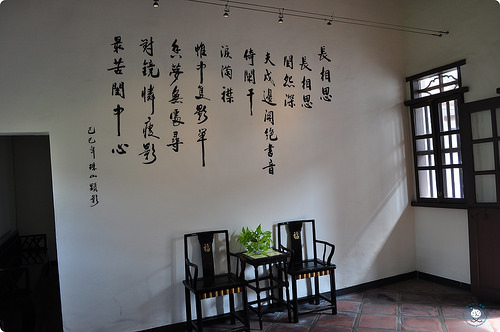 長相思
長相思
閨怨深
夫戍邊關絕書音
倚闌干
淚滿襟
帷中隻影單
魚夢無處尋
對鏡憐瘦影
最苦閨中心